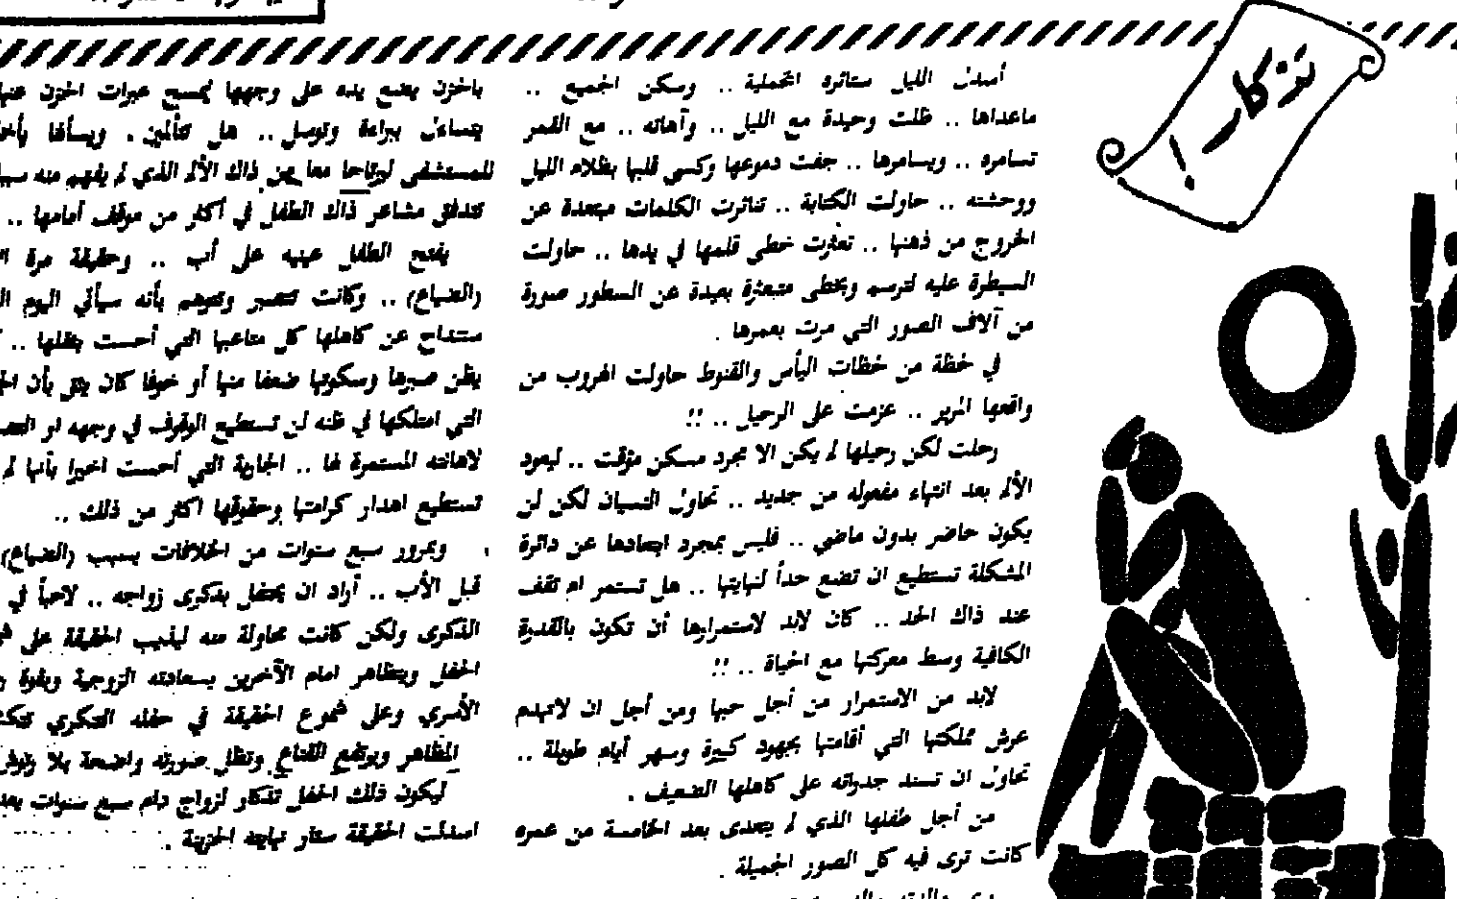 تذكار !
أسدل الليل ستائره المخملية .. وسكن الجميع ..
ماعداها .. ظلت وحيدة مع الليل .. وآهاته .. مع القمر
تسامره .. ويسامرها .. جفت دموعها وكسى قلبها بظلام الليل
ووحشته .. حاولت الكتابة .. تناثرت الكلمات مبتعدة عن
الخروج من ذهنها .. تعثرت خطى قلمها في يدها .. حاولت
السيطرة عليه لترسم وبخطى متعثرة بعيدة عن السطور صورة
من آلاف الصور التي مرت بعمرها .
في لحظة من لحظات اليأس والقنوط حاولت الهروب من
واقعها المرير .. عزمت على الرحيل .. !!
رحلت لكن رحيلها لم يكن الا مجرد مسكن مؤقت .. ليعود
الألم بعد انتهاء مفعوله من جديد .. تحاول النسيان لكن لن
يكون حاضر بدون ماضي .. فليس بمجرد ابتعادها عن دائرة
المشكلة تستطيع ان تضع حداً لنهايتها .. هل تستمر ام تقف
عند ذاك الحد .. كان لابد لاستمرارها أن تكون بالقدرة
الكافية وسط معركتها مع الحياة .. !!
لابد من الاستمرار من أجل حبها ومن أجل ان لاتهدم
عرش مملكتها التي أقامتها بجهود كبيرة وسهر أيام طويلة ..
تحاول ان تسند جدرانه على كاهلها الضعيف .
من أجل طفلها الذي لم يتعدى بعد الخامسة من عمره
كانت ترى فيه كل الصور الجميلة .
بالحزن يضع يده على وجهها يمسح عبرات الحزن
يتساءل ببراءة وتوسل .. هل تتألمين . ويسألها
للمستشفى ليرتاحا معا من ذاك الألم الذي لم يفهم منه
تتدفق مشاعر ذاك الطفل في أكثر من موقف أمامها ..
يفتح الطفل عينيه على أب .. وحقيقة مرة
(الضياع) .. وكانت تتصبر وتتوهم بأنه سيأتي اليوم
ستنداح عن كاهلها كل متاعبها التي أحست بثقلها ..
يظن صبرها وسكوتها ضعفا منها أو خوفا كان يثق بأن
التي امتلكها في ظنه لن تستطيع الوقوف في وجهه او
لاهانته المستمرة لها .. الجارية التي أحست اخيرا بأنها لم
تستطيع اهدار كرامتها وحقوقها اكثر من ذلك ..
وبمرور سبع سنوات من الخلافات بسبب (الضياع)
قبل الأب .. أراد ان يحتفل بذكرى زواجه .. لاحباً في
الذكرى ولكن كانت محاولة منه ليذيب الحقيقة على
الحفل ويتظاهر امام الآخرين بسعادته الزوجية وبقوة
الأسري وعلى شموع الحقيقة في حفله التنكري
المظاهر ويرتفع القناع وتظل صورته واضحة بلا
ليكون ذلك الحفل تذكار لزواج دام سبع سنوات
اسدلت الحقيقة ستار نهايته الحزينة .